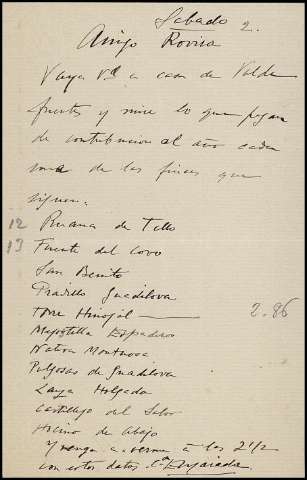 Sabado 2.
Amigo Rovira
Vaya Vd a casa de Valde
fuentes y mire lo que pagan
de contribucion al año cada
una de las fincas que
siguen:
12 Ruana de Tello
13 Fuente del Covo
San Benito
Pradillo Guadilova
Torre Hinojal — 2.86
Majestilla Espadero
Nativa
Pulgosas de Guadilova
Zarza Holgado
Castillejo del Saler
Hocino de Abajo
y venga a verme á las 2 1/2
con estos datos